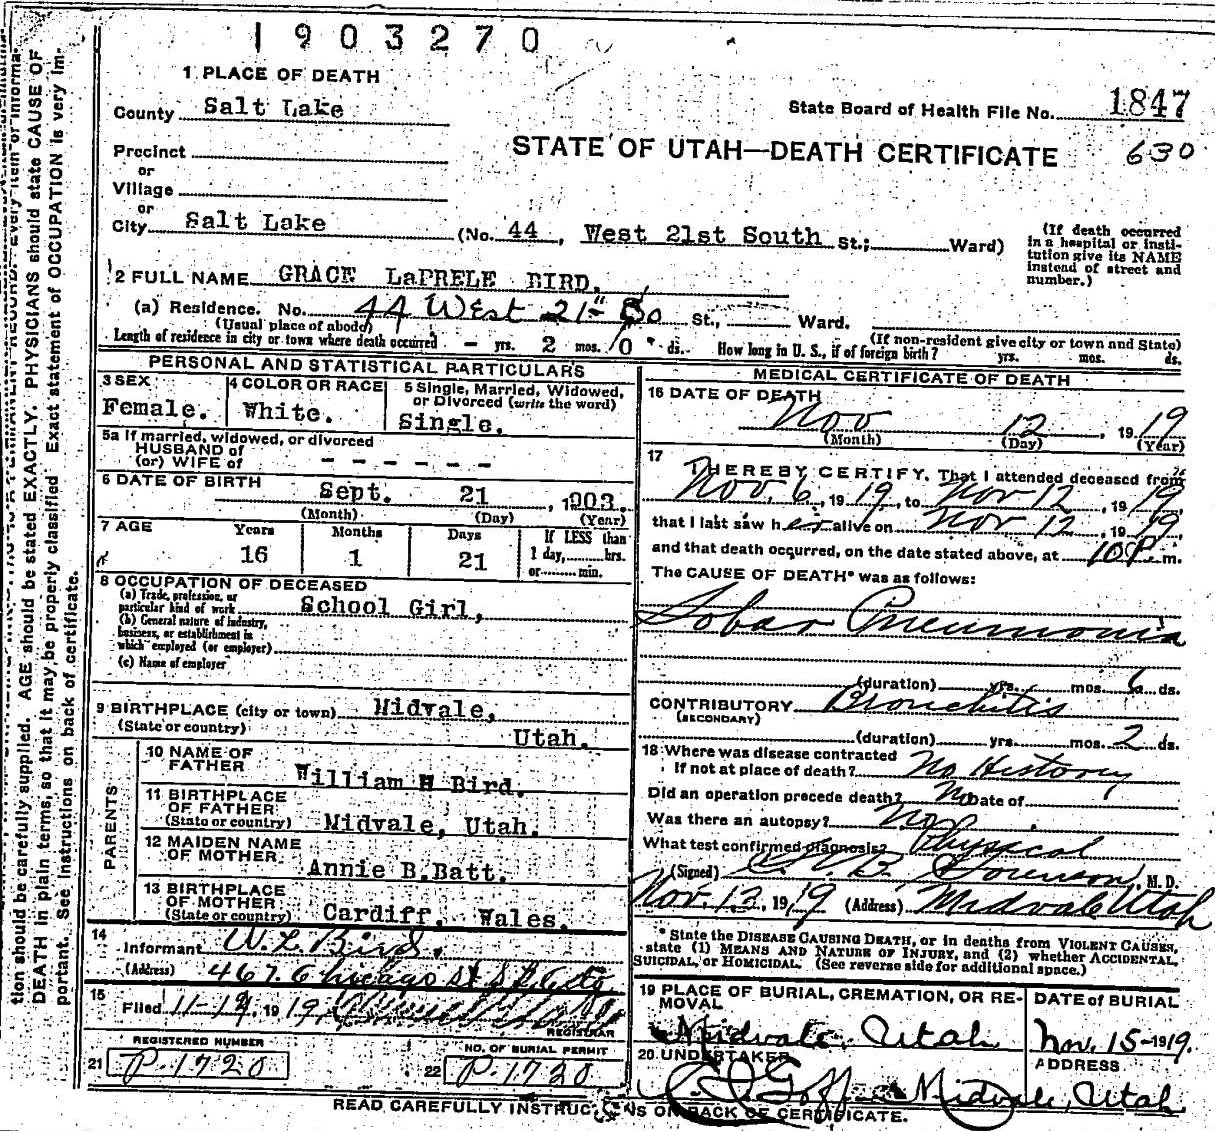 1903270
1 PLACE OF DEATH
County Salt Lake
State Board of Health File No. 1847
Precinct
or
Village
or
STATE OF UTAH—DEATH CERTIFICATE 630
City Salt Lake (No. 44, West 21st South St.; Ward)
(If death occurred in a hospital or institution give its NAME instead of street and number.)
2 FULL NAME GRACE LaPRELE BIRD.
(a) Residence. No. 44 West 21st So St., Ward.
(Usual place of abode)
(If non-resident give city or town and State)
Length of residence in city or town where death occurred - yrs. 2 mos. 10 ds. How long in U. S., if of foreign birth? yrs. mos. ds.
PERSONAL AND STATISTICAL PARTICULARS
3 SEX
Female.
4 COLOR OR RACE
White.
5 Single, Married, Widowed, or Divorced (write the word)
Single.
5a If married, widowed, or divorced
HUSBAND of
(or) WIFE of - - - - - -
6 DATE OF BIRTH
Sept. 21, 1903.
(Month) (Day) (Year)
7 AGE
Years Months Days
16 1 21
If LESS than
1 day, hrs.
or min.
8 OCCUPATION OF DECEASED
(a) Trade, profession, or
particular kind of work School Girl,
(b) General nature of industry,
business, or establishment in
which employed (or employer)
(c) Name of employer
9 BIRTHPLACE (city or town) Midvale,
(State or country) Utah.
PARENTS
10 NAME OF FATHER William H Bird.
11 BIRTHPLACE OF FATHER
(State or country) Midvale, Utah.
12 MAIDEN NAME OF MOTHER Annie B.Batt.
13 BIRTHPLACE OF MOTHER
(State or country) Cardiff, Wales.
14
Informant W. L. Bird.
(Address) 467. Chicago St S L City
15
Filed 11-14, 1919
REGISTRAR
REGISTERED NUMBER
21 P.1720
NO. OF BURIAL PERMIT
22 P.1720
MEDICAL CERTIFICATE OF DEATH
16 DATE OF DEATH
Nov 12, 1919
(Month) (Day) (Year)
17
I HEREBY CERTIFY, That I attended deceased from
Nov. 6, 1919, to Nov 12, 1919,
that I last saw her alive on Nov 12, 1919,
and that death occurred, on the date stated above, at 10 P m.
The CAUSE OF DEATH* was as follows:
Lobar Pneumonia
(duration) yrs. mos. 6 ds.
CONTRIBUTORY Bronchitis
(SECONDARY)
(duration) yrs. mos. 2 ds.
18 Where was disease contracted
If not at place of death? No History
Did an operation precede death? No Date of
Was there an autopsy? No
What test confirmed diagnosis? Physical
(Signed) Sorenson, M. D.
Nov. 12, 1919 (Address) Midvale Utah
* State the DISEASE CAUSING DEATH, or in deaths from VIOLENT CAUSES,
state (1) MEANS AND NATURE OF INJURY, and (2) whether ACCIDENTAL,
SUICIDAL, or HOMICIDAL. (See reverse side for additional space.)
19 PLACE OF BURIAL, CREMATION, OR REMOVAL
Midvale, Utah
DATE of BURIAL
Nov. 15-1919.
20 UNDERTAKER
Goff
ADDRESS
Midvale, Utah
READ CAREFULLY INSTRUCTIONS ON BACK OF CERTIFICATE.
tion should be carefully supplied. AGE should be stated EXACTLY. PHYSICIANS should state CAUSE OF
DEATH in plain terms, so that it may be properly classified. Exact statement of OCCUPATION is very im-
portant. See instructions on back of certificate.